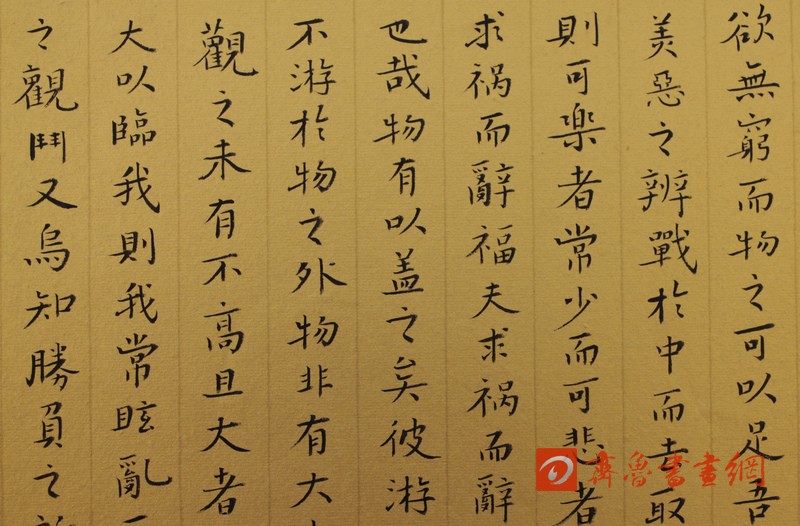 欲無窮而物之可以足吾
美惡之辨戰於中而去取
則可樂者常少而可悲者
求禍而辭福夫求禍而辭
也哉物有以盖之矣彼游
不游於物之外物非有大
觀之未有不高且大者
大以臨我則我常眩亂
之觀鬥又烏知勝負之
齊魯書畫網